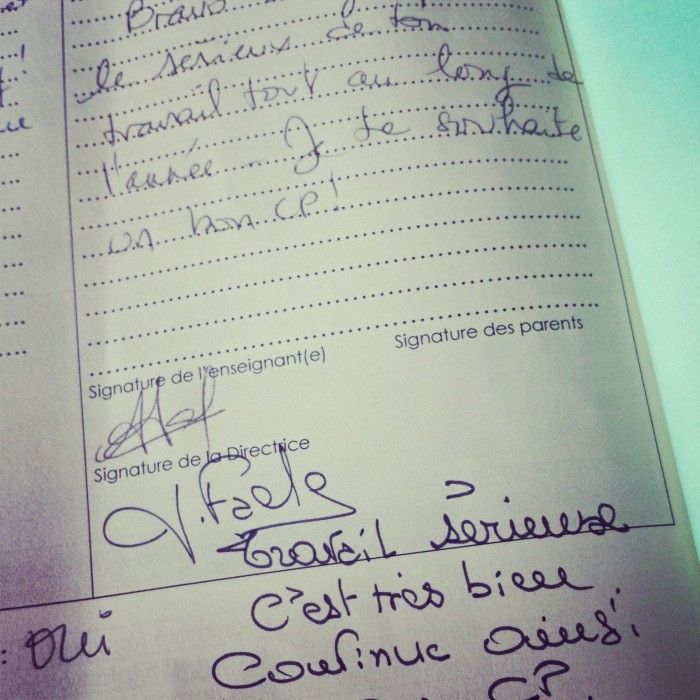 Bravo
le serieux de ton
travail tout au long de
l'année. Je te souhaite
un bon CP!
Signature de l'enseignant(e)
Signature des parents
Signature de la Directrice
Travail Sérieuse
C'est très bien
Continue ainsi.
: oui
CP.